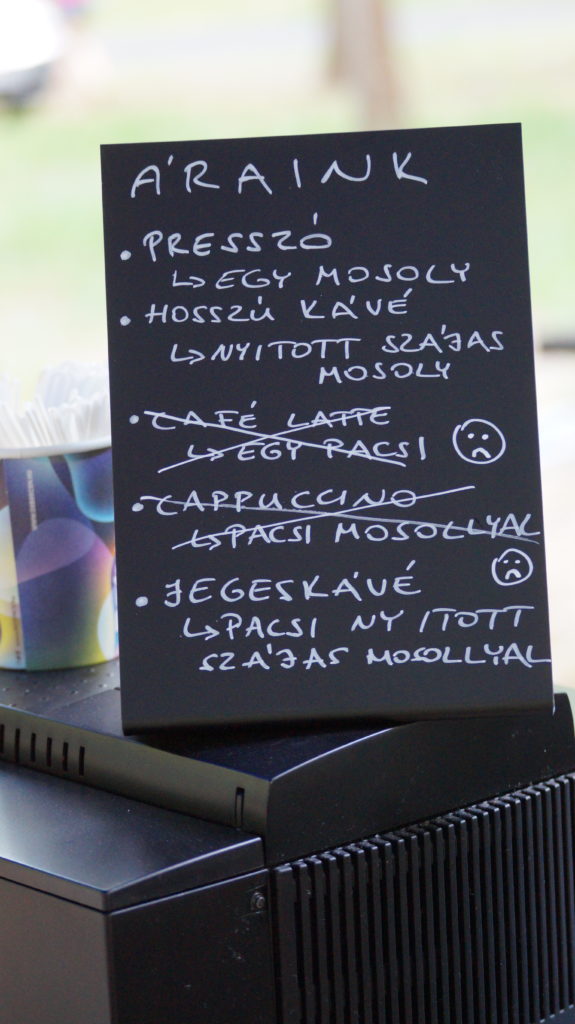 ÁRAINK
• PRESSZÓ
↳ EGY MOSOLY
• HOSSZÚ KÁVÉ
↳ NYITOTT SZÁJAS
MOSOLY
• CAFÉ LATTE
↳ EGY PACSI
• CAPPUCCINO
↳ PACSI MOSOLLYAL
• JEGESKÁVÉ
↳ PACSI NYITOTT
SZÁJAS MOSOLLYAL